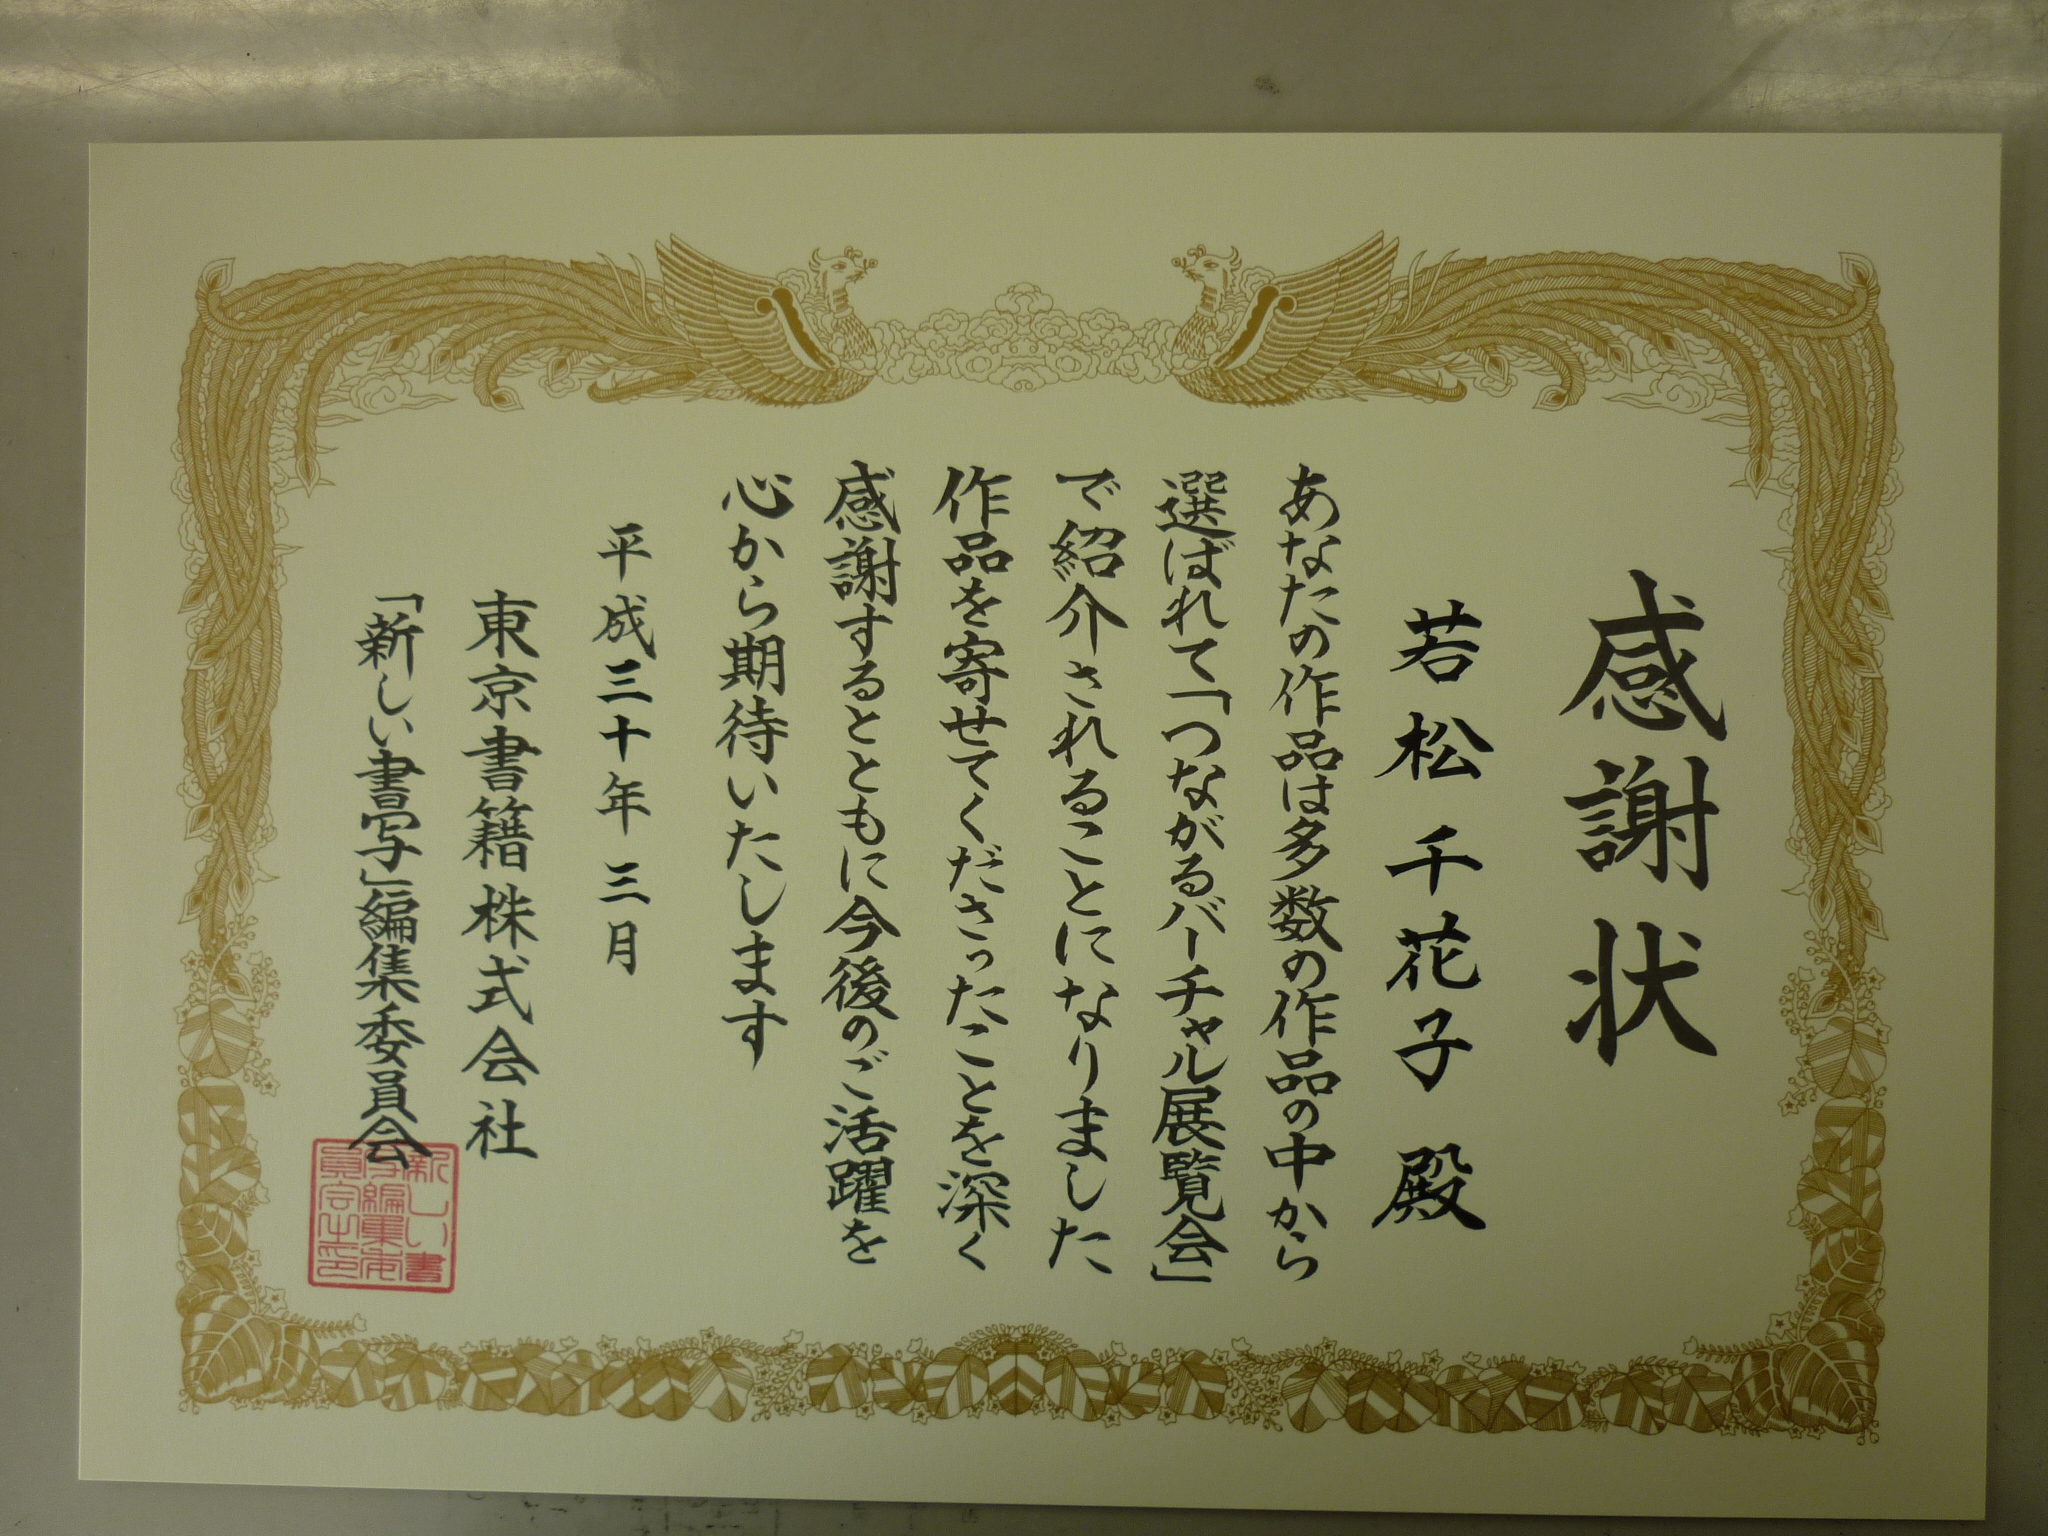 感謝状
若松千花子殿
あなたの作品は多数の作品の中から
選ばれて「つながるバーチャル展覧会」
で紹介されることになりました
作品を寄せてくださったことを深く
感謝するとともに今後のご活躍を
心から期待いたします
平成三十年三月
東京書籍株式会社
「新しい書写」編集委員会
新しい書
写編集委
員会之印